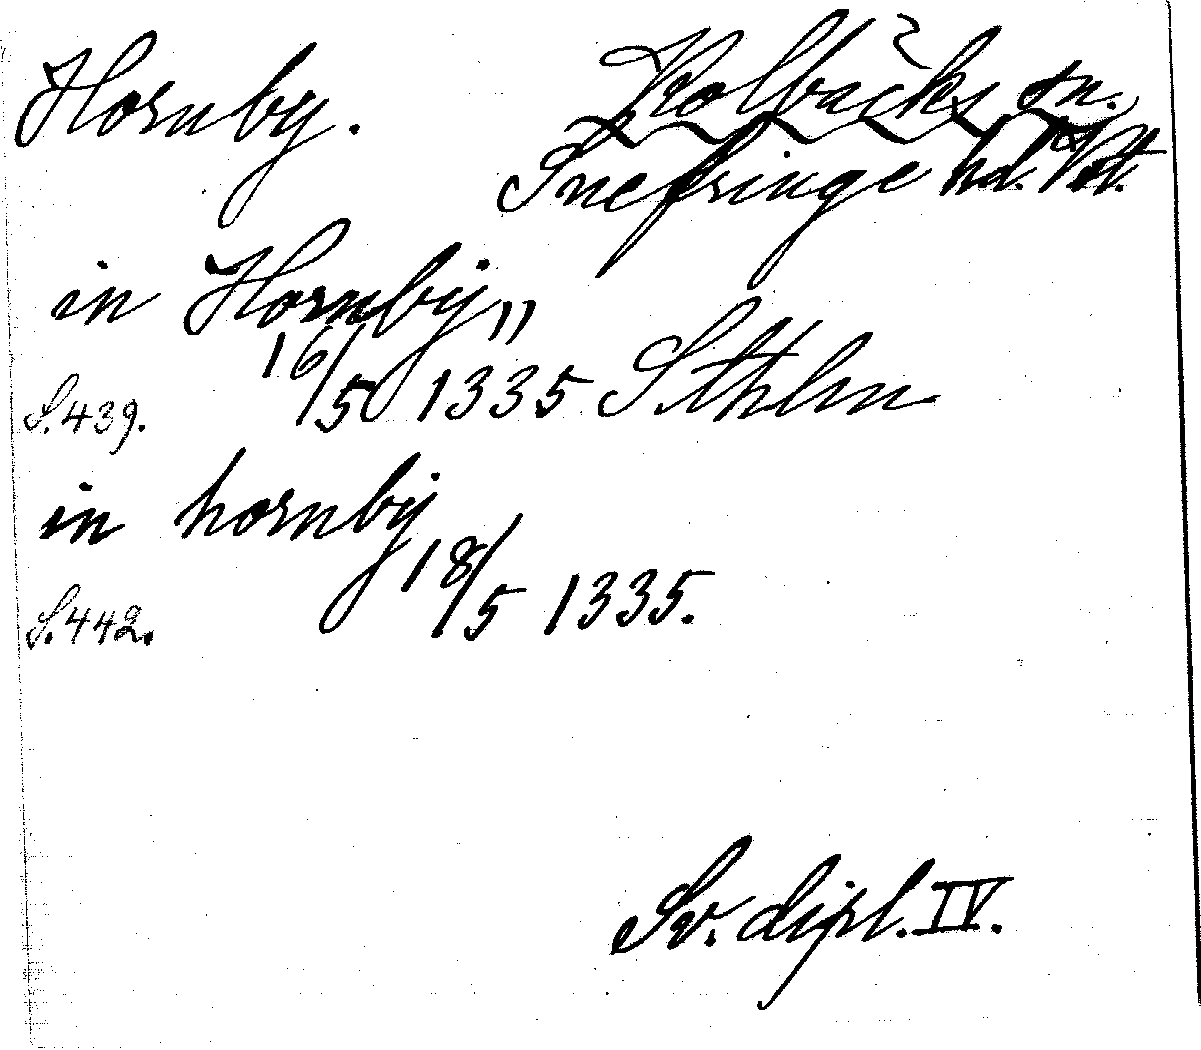 Hornby. Kolbäcks sn.
Snefringe hd. Vstm.
in Hornby,,
S. 439. 16/5 1335 Sthlm
in hornby
S. 442. 18/5 1335.
Sv. dipl. IV.